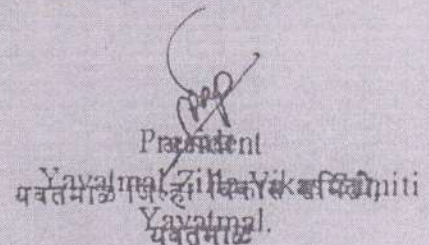 President
अध्यक्ष
Yavatmal Zilha Vikas Samiti
यवतमाळ जिल्हा विकास समिती,
Yavatmal.
यवतमाळ